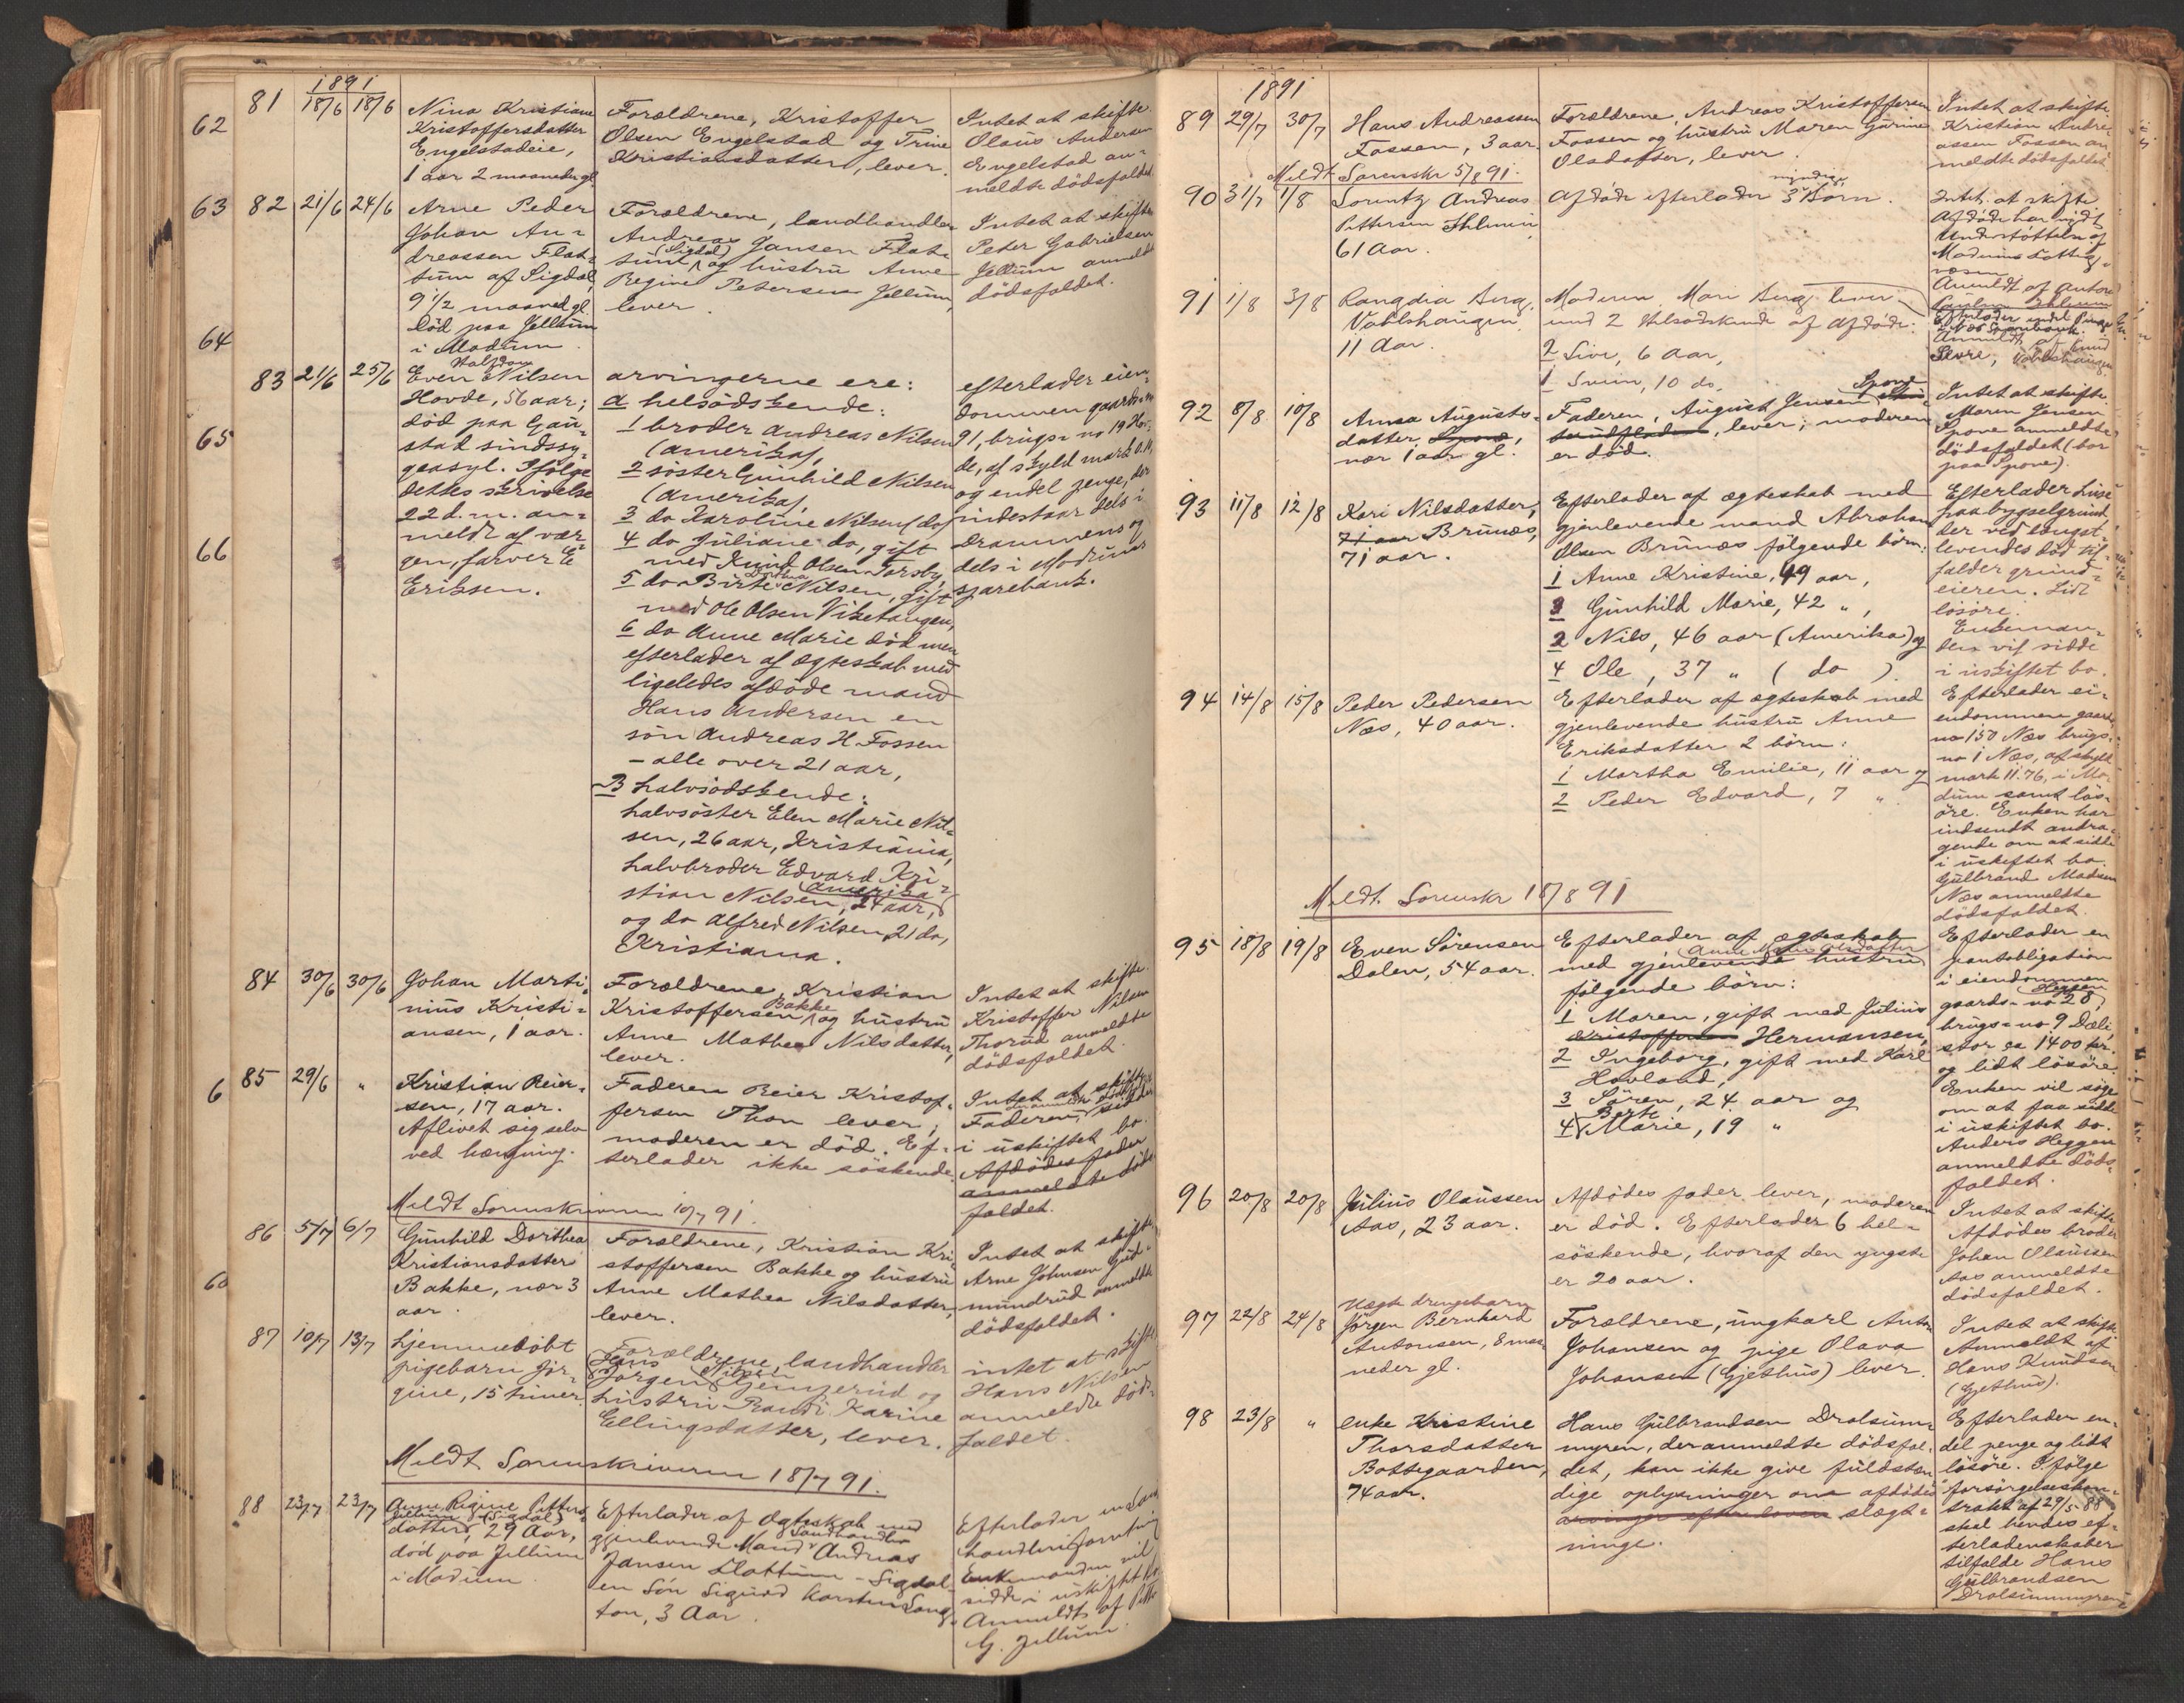 1891
81 18/6 18/6
Nina Kristiane
Kristoffersdatter
Engelstadeie,
1 aar 2 maaneder gl.
Forældrene, Kristoffer
Olsen Engelstad og Trine
Kristiansdatter, lever.
Intet at skifte.
Olaus Andersen
Engelstad an-
meldte dödsfaldet.
62
63
82 21/6 24/6
Arne Peder
Johan An-
dreassen Flat-
tum af Sigdal,
9 1/2 maaned gl.
död paa Jellum
i Modum.
Forældrene, landhandler
Andreas Jansen Flat-
tum (Sigdal) og hustru Anne
Regine Petersen Jellum,
lever.
Intet at skifte
Peter Gabrielsen
Jellum anmeldte
dödsfaldet.
64
83 21/6 25/6
Even Halfdan Nilsen
Hovde, 56 aar;
död paa Gau-
stad sindssy-
geasyl. Ifölge
dettes skrivelse
22 d. m. an-
meldt af vær-
gen, farver E
Eriksen.
arvingerne ere:
a helsödskende:
1 broder Andreas Nilsen
(Amerika),
2 söster Gunhild Nilsen
(Amerika),
3 do Karoline Nilsen (do)
4 do Juliane do, gift
med Knud Olsen Forsby,
5 do Birte Dorthea Nilsen, gift
med Ole Olsen Viketangen,
6 do Anne Marie död men
efterlader af ægteskab med
ligeledes afdöde mand
Hans Andersen en
sön Andreas H. Fossen
- alle over 21 aar,
B halvsödskende:
halvsöster Elen Marie Nil-
sen, 26 aar, Kristiania,
halvbroder Edvard Kri-
stian Nilsen, 24 aar, (Amerika)
og do Alfred Nilsen, 21 do,
Kristiania.
efterlader eien-
dommen gaards-no
91, brugs-no 19 Hov-
de, af skyld mark 0.11,
og endel penge, der
indestaar dels i
Drammens og
dels i Modums
sparebank.
65
66
84 30/6 30/6
Johan Marti-
nius Kristi-
ansen, 1 aar.
Forældrene, Kristian
Kristoffersen Bakke og hustru
Anne Mathea Nilsdatter,
lever.
Intet at skifte.
Kristoffer Nilsen
Thorud anmeldte
dödsfaldet.
6
85 29/6 "
Kristian Reier-
sen, 17 aar.
Aflivet sig selv
ved hængning.
Faderen Reier Kristof-
fersen Thon lever;
moderen er död. Ef-
terlader ikke söskende.
Intet at skifte
Faderen, sidder
i uskiftet bo.
Afdödes fader
anmeldte döds-
faldet.
Meldt Sorenskriveren 10/7 91.
86 5/7 6/7
Gunhild Dorthea
Kristiansdatter
Bakke, nær 3
aar.
Forældrene, Kristian Kri-
stoffersen Bakke og hustru
Anne Mathea Nilsdatter,
lever.
Intet at skifte
Arne Johnsen Gud-
mundrud anmeldte
dödsfaldet.
60
87 10/7 13/7
hjemmedöbt
pigebarn Jör-
gine, 15 timer
Forældrene, landhandler
Hans Jörgen Nilsen Gjemperud og
hustru Randi Karine
Ellingsdatter, lever.
intet at skifte
Hans Nilsen
anmeldte döds-
faldet.
Meldt Sorenskriveren 18/7 91.
88 23/7 23/7
Anne Regine Petters-
Jellum (Sigdal)
datter, 29 Aar,
död paa Jellum
i Modum
Efterlader af Ægteskab med
gjenlevende Mand Landhandler Andreas
Jansen Flattum - Sigdal
en Sön Sigurd Karsten Lang-
ton, 3 Aar.
Efterlader en Land-
handlerforretning
Enkemanden vil
sidde i uskiftet bo
Anmeldt af Petter
G. Jellum.
1891
89 29/7 30/7
Hans Andreassen
Fossen, 3 aar.
Forældrene, Andreas Kristoffersen
Fossen og hustru Maren Gurine
Olsdatter, lever.
Intet at skifte.
Kristian Andre-
assen Fossen an-
meldte dödsfaldet
Meldt Sorenskr 5/8 91.
90 31/7 1/8
Lorentz Andreas
Pettersen Ihlemin
61 Aar.
Afdöde efterlader 3 myndige Börn.
Intet at skifte
Afdöde har nydt
Understöttelse af
Modums Fattig-
væsen.
Anmeldt af Anton
91 1/8 3/8
Rangdia Berg.
Vahlshaugen.
11 Aar.
Moderen Mari Berg lever
med 2 Helsödskende af Afdöde:
2 Sivi, 6 Aar,
1 Svein, 10 do.
Efterlader endel Penge
i Næs Sparebank.
Anmeldt af Knud
Sevre, Vahlshaugen
92 8/8 10/8
Anna Augusts-
datter Spone,
nær 1 aar gl.
Faderen, August Jensen Spone
, lever; moderen
er död.
Intet at skifte.
Maren Jensen
Spone anmeldte
dödsfaldet (bor
paa Spone).
93 11/8 12/8
Kari Nilsdatter,
71 aar Brunæs,
71 aar.
Efterlader af ægteskab med
gjenlevende mand Abraham
Olsen Brunæs fölgende börn:
1 Anne Kristine, 49 aar,
3 Gunhild Marie, 42 ",
2 Nils, 46 aar (Amerika) og
4 Ole, 37 " (do)
Efterlader huse
paa bygselgrund
der ved længst-
levendes död til-
falder grund-
eieren. Lidt
lösöre.
Enkeman-
den vil sidde
i uskiftet bo.
94 14/8 15/8
Peder Pedersen
Næs, 40 aar.
Efterlader af ægteskab med
gjenlevende hustru Anne
Eriksdatter 2 börn:
1 Martha Emilie, 11 aar og
2 Peder Edvard, 7 "
Efterlader ei-
endommen gaards-
no 150 Næs brugs-
no 1 Næs, af skyld
mark 11.76, i Mo-
dum samt lös-
öre. Enken har
indsendt andra-
gende om at sidde
i uskiftet bo.
Gulbrand Madsen
Næs anmeldte
dödsfaldet.
Meldt. Sorenskr 18/8 91
95 18/8 19/8
Even Sörensen
Dalen, 54 aar.
Efterlader af ægteskab
med gjenlevende hustru Anne Marie Olsdatter
fölgende börn:
1 Maren, gift med Julius
Kristoffersen Hermansen,
2 Ingeborg, gift med Karl
Hovland,
3 Sören, 24 aar og
4 Berte Marie, 19 "
Efterlader en
pantobligation
i eiendommen
gaards-no 28, Heggen
brugs-no 9 Dæli,
stor ca 1400 kr.
og lidt lösöre.
Enken vil söge
om at faa sidde
i uskiftet bo.
Anders Heggen
anmeldte döds-
faldet.
96 20/8 20/8
Julius Olaussen
Aas, 23 aar.
Afdödes fader lever, moderen
er död. Efterlader 6 hel-
söskende, hvoraf den yngste
er 20 aar.
Intet at skifte
Afdödes broder
Johan Olaussen
Aas anmeldte
dödsfaldet.
97 22/8 24/8
Uægte drengebarn
Jörgen Bernhard
Antonsen, 8 maa-
neder gl.
Forældrene, ungkarl Anton
Johansen og pige Olava
Johansen (Gjethus) lever.
Intet at skifte
Anmeldt af
Hans Knudsen
(Gjethus).
98 23/8 "
enke Kristine
Thorsdatter
Bottegaarden,
74 aar.
Hans Gulbrandsen Drolsum-
myren, der anmeldte dödsfal-
det, kan ikke give fuldstæn-
dige oplysninger om afdödes
arvinger efter loven slægt-
ninge.
Efterlader en-
del penge og lidt
lösöre. Ifölge
forsörgelseskon-
trakt af 29/5 88
skal hendes ef-
terladenskaber
tilfalde Hans
Gulbrandsen
Drolsummyren